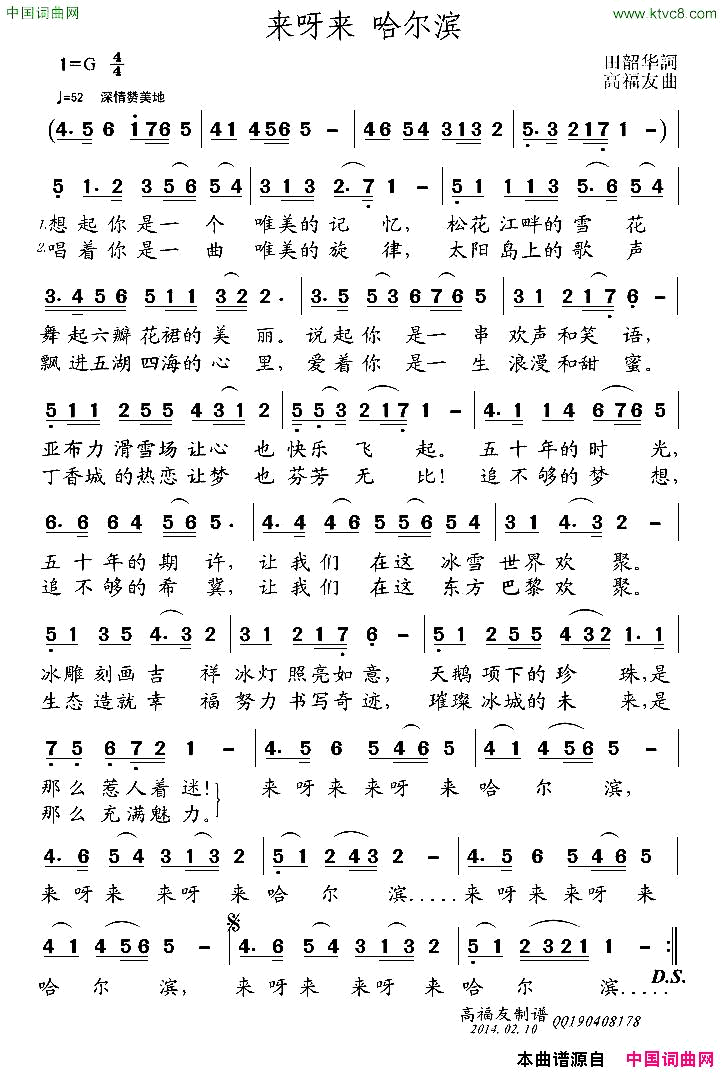 中国词曲网
www.ktvc8.com
来呀来 哈尔滨
1=G 4/4
田韶华詞
高福友曲
♩=52 深情赞美地
(4. 5 6 1 7 6 5 | 4 1 4 5 6 5 5 - | 4 6 5 4 3 1 3 2 | 5. 3 2 1 7 1 - )
5 1. 2 3 5 5 6 5 4 | 3 1 3 2. 7 1 - | 5 1 1 1 3 5. 6 5 4
1.想起你是一个 唯美的记忆, 松花江畔的雪花
2.唱着你是一曲 唯美的旋律, 太阳岛上的歌声
3. 4 5 6 5 1 1 3 2 2. | 3. 5 5 3 6 7 6 5 | 3 1 2 1 7 6 -
舞起六瓣花裙的美丽。说起你是一串欢声和笑语,
飘进五湖四海的心里,爱着你是一生浪漫和甜蜜。
5 1 1 2 5 5 4 3 1 2 | 5 5 3 2 1 7 1 - | 4. 1 1 4 6 7 6 5
亚布力滑雪场让心也快乐飞起。五十年的时光,
丁香城的热恋让梦也芬芳无比!追不够的梦想,
6. 6 6 4 5 6 5. | 4. 4 4 6 5 5 6 5 4 | 3 1 4. 3 2 -
五十年的期许,让我们在这冰雪世界欢聚。
追不够的希冀,让我们在这东方巴黎欢聚。
5 1 3 5 4. 3 2 | 3 1 2 1 7 6 - | 5 1 2 5 5 4 3 2 1. 1
冰雕刻画吉祥冰灯照亮如意,天鹅项下的珍珠,是
生态造就幸福努力书写奇迹,璀璨冰城的未来,是
7 5 6 7 2 1 - | 4. 5 6 4 6 5 | 4 1 4 5 6 5 -
那么惹人着迷! 来呀来来呀来哈尔滨,
那么充满魅力。
4. 6 5 4 3 1 3 2 | 5 1 2 4 3 2 - | 4. 5 6 5 4 5
来呀来来呀来哈尔滨.....来呀来来呀来
4 1 4 5 6 5 - | 4. 6 5 4 3 1 3 2 | 5 1 2 3 2 1 1 - :||
D.S.
哈尔滨,来呀来来呀来哈尔滨.....
高福友制谱
2014.02.10
QQ190408178
本曲谱源自 中国词曲网